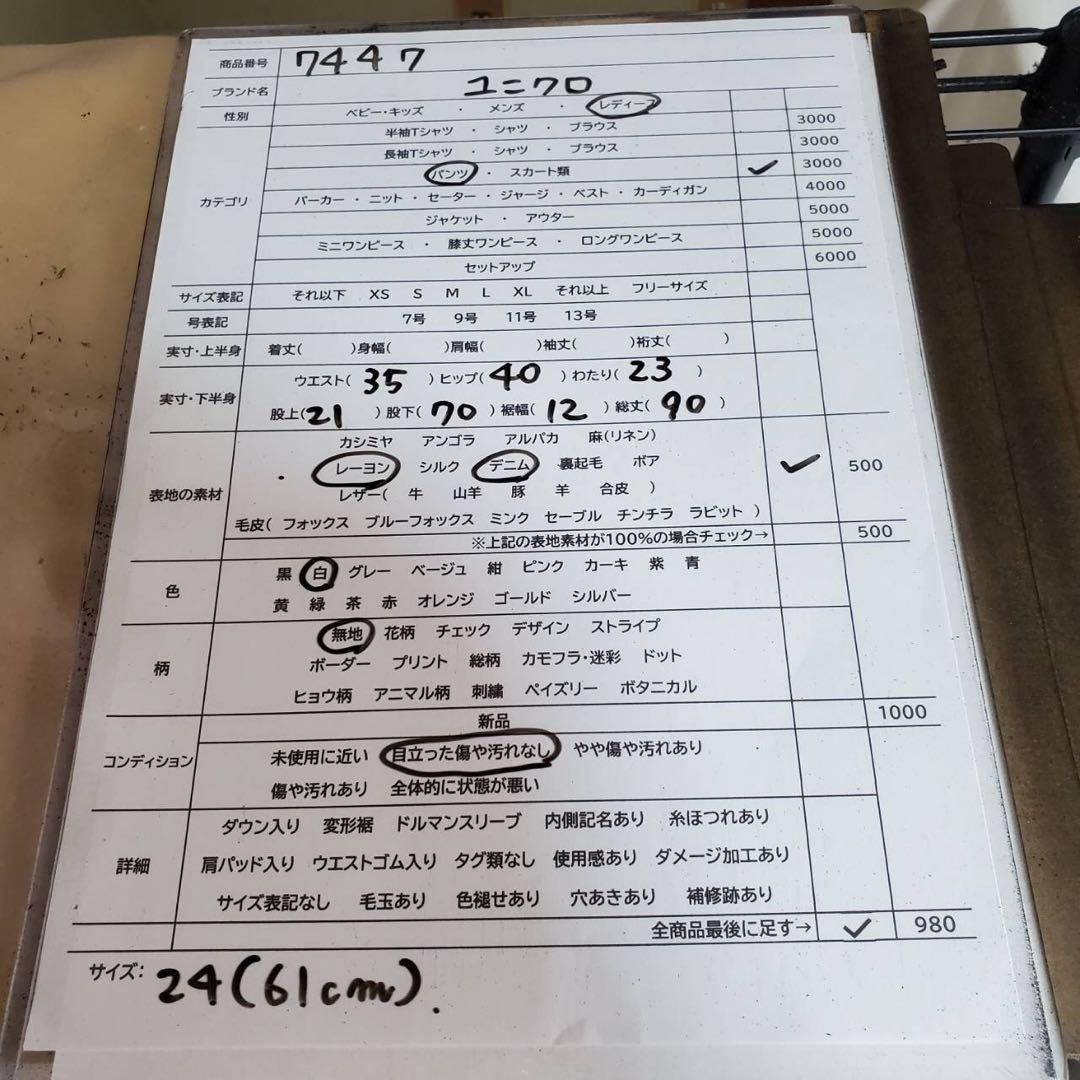 商品番号 7447
ブランド名 ユニクロ
性別 ベビー・キッズ ・ メンズ ・ レディース
半袖Tシャツ ・ シャツ ・ ブラウス 3000
長袖Tシャツ ・ シャツ ・ ブラウス 3000
パンツ ・ スカート類 ✓ 3000
カテゴリ パーカー ・ ニット ・ セーター ・ ジャージ ・ ベスト ・ カーディガン 4000
ジャケット ・ アウター 5000
ミニワンピース ・ 膝丈ワンピース ・ ロングワンピース 5000
セットアップ 6000
サイズ表記 それ以下 XS S M L XL それ以上 フリーサイズ
号表記 7号 9号 11号 13号
実寸・上半身 着丈( )身幅( )肩幅( )袖丈( )裄丈( )
実寸・下半身 ウエスト( 35 )ヒップ( 40 )わたり( 23 )
股上( 21 )股下( 70 )裾幅( 12 )総丈( 90 )
カシミヤ アンゴラ アルパカ 麻(リネン)
レーヨン シルク デニム 裏起毛 ボア ✓ 500
表地の素材 レザー( 牛 山羊 豚 羊 合皮 )
毛皮( フォックス ブルーフォックス ミンク セーブル チンチラ ラビット )
※上記の表地素材が100%の場合チェック→ 500
色 黒 白 グレー ベージュ 紺 ピンク カーキ 紫 青
黄 緑 茶 赤 オレンジ ゴールド シルバー
無地 花柄 チェック デザイン ストライプ
柄 ボーダー プリント 総柄 カモフラ・迷彩 ドット
ヒョウ柄 アニマル柄 刺繍 ペイズリー ボタニカル
新品 1000
コンディション 未使用に近い 目立った傷や汚れなし やや傷や汚れあり
傷や汚れあり 全体的に状態が悪い
ダウン入り 変形裾 ドルマンスリーブ 内側記名あり 糸ほつれあり
詳細 肩パッド入り ウエストゴム入り タグ類なし 使用感あり ダメージ加工あり
サイズ表記なし 毛玉あり 色褪せあり 穴あきあり 補修跡あり
全商品最後に足す→ ✓ 980
サイズ: 24(61cm).